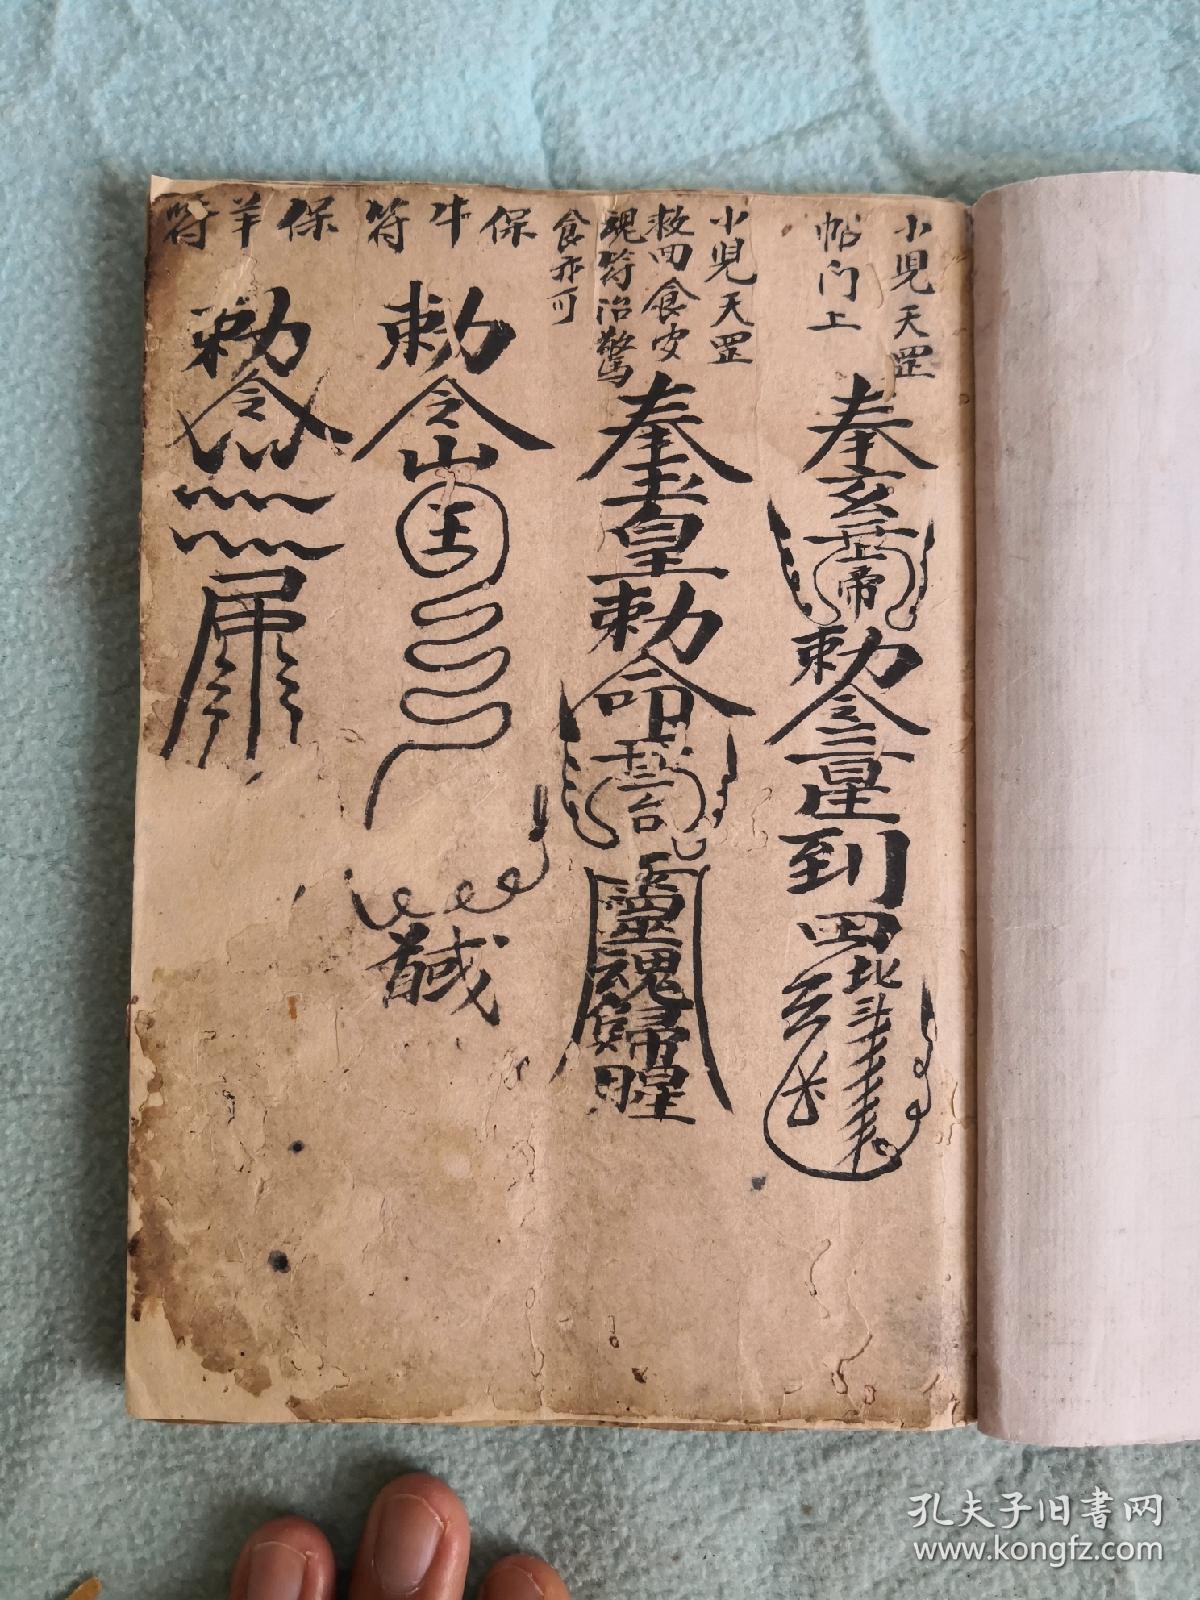 小児天罡
帖门上
奉玄天上帝勅令三星到罡北斗
小児天罡
救回食安
魂符治驚
食亦可
奉玉皇勅命三台靈魂歸腥
保牛符
勅令山王
保羊符
勅令
孔夫子旧書网
www.kongfz.com